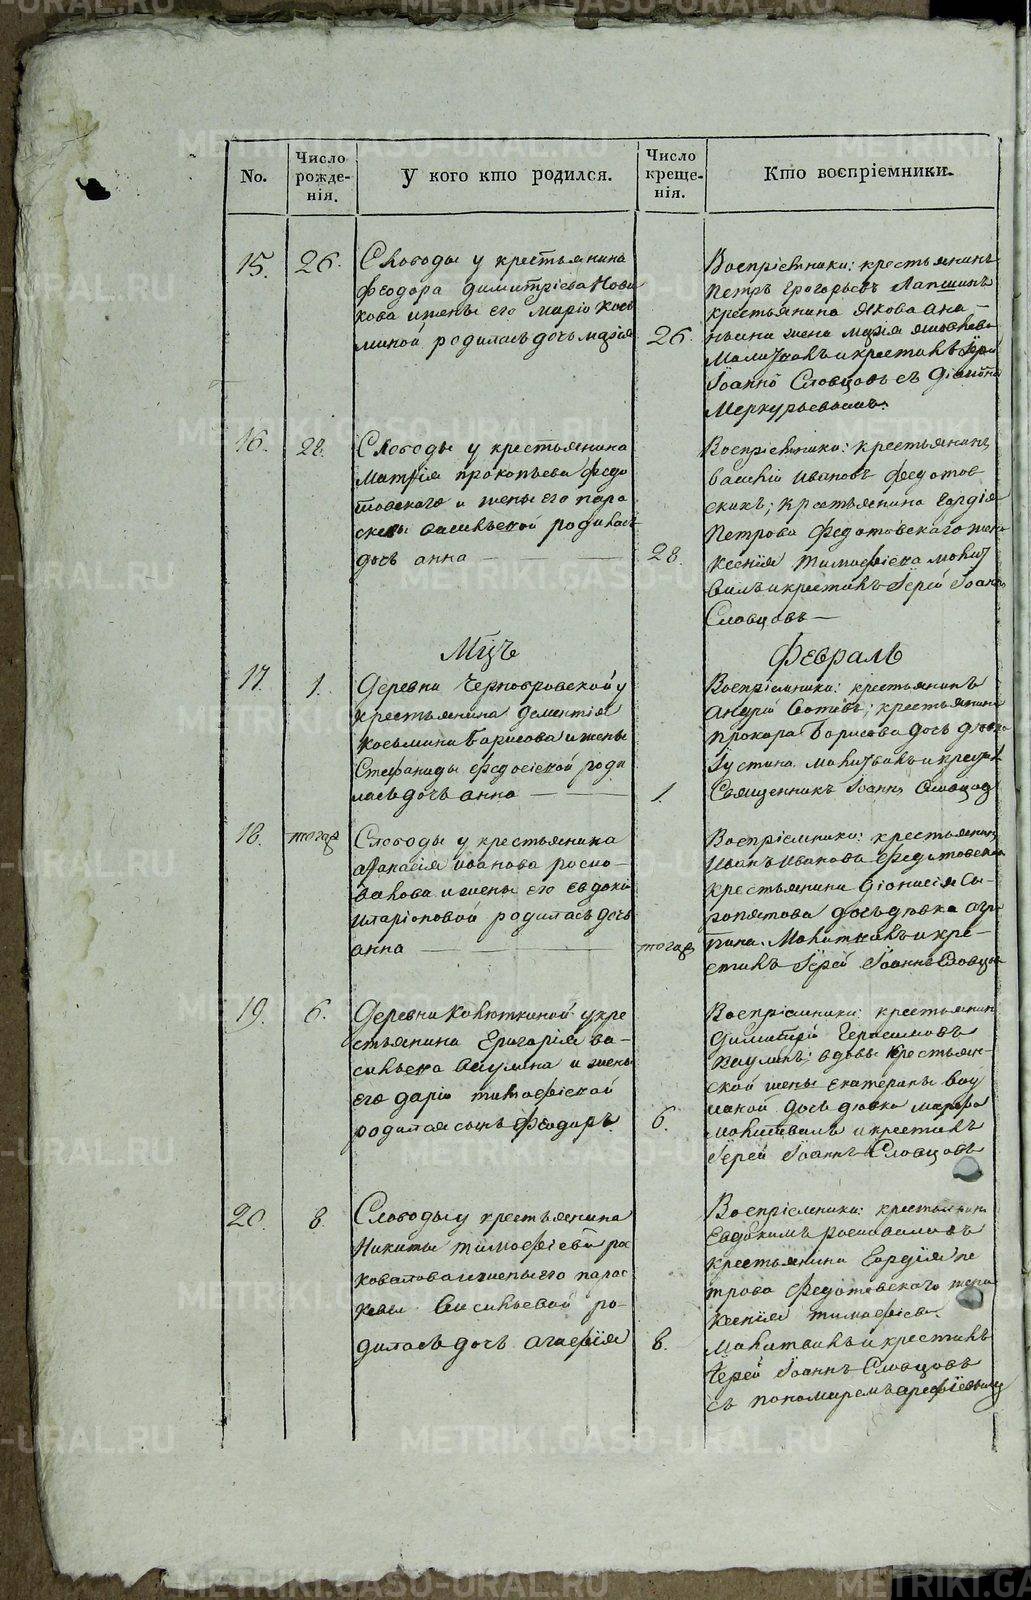 No.
Число рожде-нія.
У кого кто родился.
Число креще-нія.
Кто воспріемники.
15.
26.
Слободы у крестьянина
Феодора Димитріева Нови
кова и жены его Маріи Кось
миной родилась дочь Марія
26.
Воспріемники: крестьянинъ
Петръ Григорьевъ Лапшинъ
крестьянина Якова Ана-
ньина жена Марія
Молитвилъ и крестилъ Іерей
Іоаннъ Словцовъ съ
Меркурьевымъ.
16.
28.
Слободы у крестьянина
Матѳія Прокопьева Федо
товскаго и жены его Пара
скевы Васильевой родилась
дочь Анна
28.
Воспріемники: крестьянинъ
Василій Ивановъ Федотов
скихъ; крестьянина Гордія
Петрова Федотовскаго жена
Ксенія Тимофіева молит
вилъ и крестилъ Іерей Іоаннъ
Словцовъ
Мцъ
Февраль
17.
1.
Деревни Чернобровской у
крестьянина Дементія
Косьмина Барисова и жены
Стефаниды Федосіевой роди
лась дочь Анна
1.
Воспріемники: крестьянинъ
Андрей; крестьянина
Прохора Борисова дочь девка
Іустина. Молитвилъ и крестил
Священникъ Іоаннъ Словцов
18.
тогож
Слободы у крестьянина
Аѳанасія Иванова Роспо-
валова и жены его Евдокіи
Иларіоновой родилась дочь
Анна
тогож
Воспріемники: крестьянинъ
Иванъ Ивановъ Федотовской
крестьянина Діонисія Сы-
ропятова дочь девка Агри
пина. Молитвилъ и кре-
стилъ Іерей Іоаннъ Словцов
19.
6.
Деревни Колюткиной у кре
стьянина Григорія Ва-
сильева Ваулина и жены
его Даріи Тимофіевой
родился сынъ Феодоръ
6.
Воспріемники: крестьянин
Димитрій Герасимовъ
Ваулинъ; вдовы крестьян-
ской жены Екатерины Вау
линой дочь девка Марфа
Молитвилъ и крестилъ
Іерей Іоаннъ Словцовъ
20.
8.
Слободы у крестьянина
Никиты Тимофіева Рос
повалова и жены его Парас
кевы Васильевой ро-
дилась дочь Агафія
8.
Воспріемники: крестьянинъ
Евдокимъ Росповаловъ
крестьянина Гордія Пе
трова Федотовскаго жена
Ксенія Тимофіева.
Молитвилъ и крестилъ
Іерей Іоаннъ Словцовъ
съ пономаремъ Арефіевымъ
METRIKI.GASO-URAL.RU